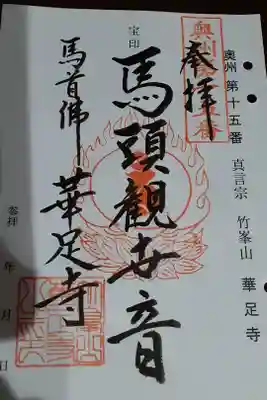 奥州 第十五番 真言宗 竹峯山 華足寺
奉拝
宝印
馬頭觀世音
馬首佛
華足寺
参拝 年 月 日